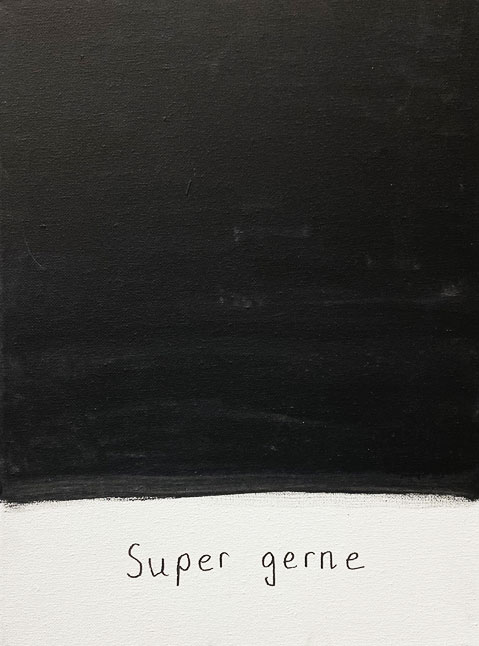 Super gerne